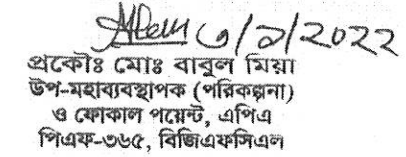 ৩/৯/2022
প্রকৌঃ মোঃ বাবুল মিয়া
উপ-মহাব্যবস্থাপক (পরিকল্পনা)
ও ফোকাল পয়েন্ট, এপিএ
পিএফ-৩৬৫, বিজিএফসিএল